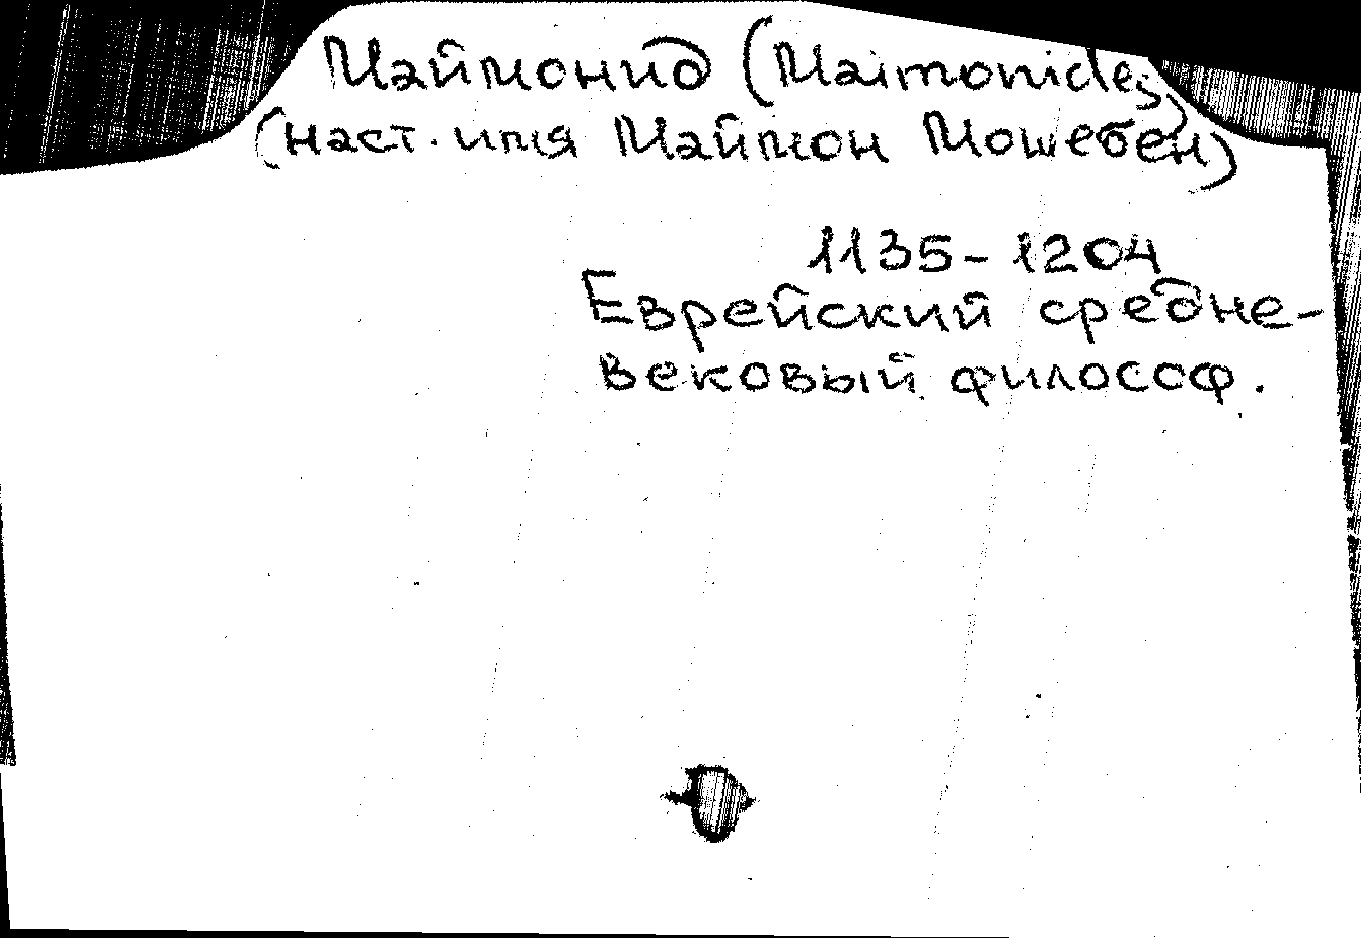 Маймонид (Maimonides)
(наст. имя Маймон Мошебен)
1135-1204
Еврейский средне-
вековый философ.